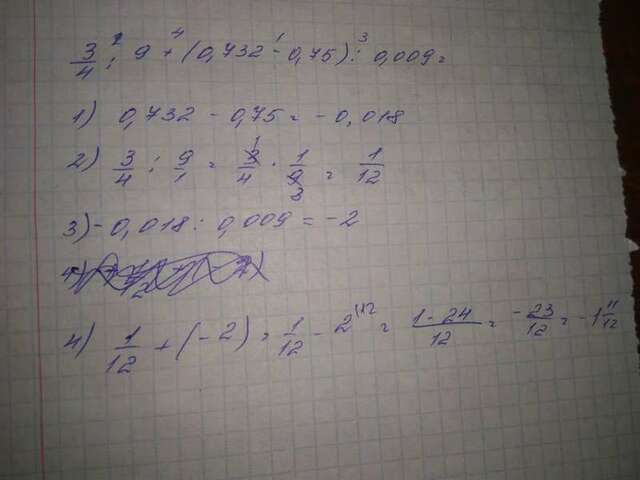 3/4 : 9 + (0,732 - 0,75) : 0,009 =
1) 0,732 - 0,75 = - 0,018
2) 3/4 : 9/1 = 3/4 · 1/9 = 1/12
3) - 0,018 : 0,009 = - 2
4) 1/12 + (- 2) = 1/12 - 2 = 1 - 24/12 = - 23/12 = - 1 11/12